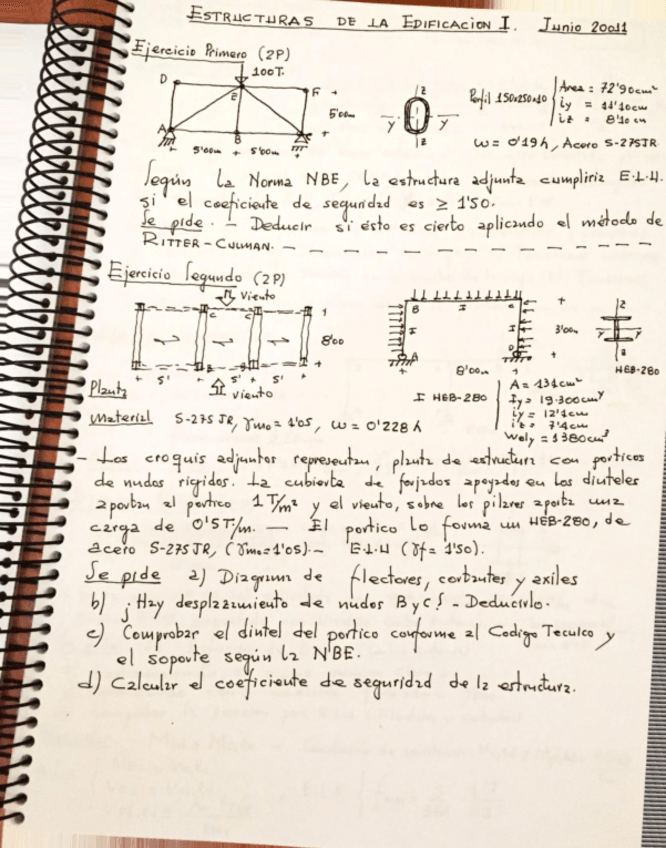 ESTRUCTURAS DE LA EDIFICACION I. Junio 20011
Ejercicio Primero (2P)
100T.
D
E
F
A
B
C
5'00m
5'00m + 5'00m
Z
Y
Y
Z
Perfil 150x250x10
Area = 72'90cm²
iy = 11'10cm
iz = 8'10cm
ω = 0'19 h, Acero S-275JR
Según la Norma NBE, la estructura adjunta cumpliriz E.L.U.
si el coeficiente de seguridad es ≥ 1'50.
Se pide. - Deducir si ésto es cierto aplicando el método de
RITTER-CULMAN.
Ejercicio Segundo (2P)
Viento
8'00
5' 5' 5'
Viento
Planta
B
I
C
I
I
A
D
3'00m
8'00m
Z
Y
Y
Z
HEB-280
I HEB-280
A = 131cm²
Iy = 19.300cm⁴
iy = 12'1cm
iz = 7'4cm
Wely = 1380cm³
Material S-275 JR, γmo = 1'05, ω = 0'228 h
- Los croquis adjuntos representan, planta de estructura con porticos
de nudos rigidos. La cubierta de forjados apoyados en los dinteles
aportan al portico 1 T/m² y el viento, sobre los pilares aporta una
carga de 0'5T/m. — El portico lo forma un HEB-280, de
acero S-275JR, (γmo=1'05).- E.L.U (γf= 1'50).
Se pide a) Diagrama de flectores, cortantes y axiles
b) ¿Hay desplazamiento de nudos B y C? - Deducirlo.
c) Comprobar el dintel del portico conforme al Codigo Tecnico y
el soporte según la NBE.
d) Calcular el coeficiente de seguridad de la estructura.